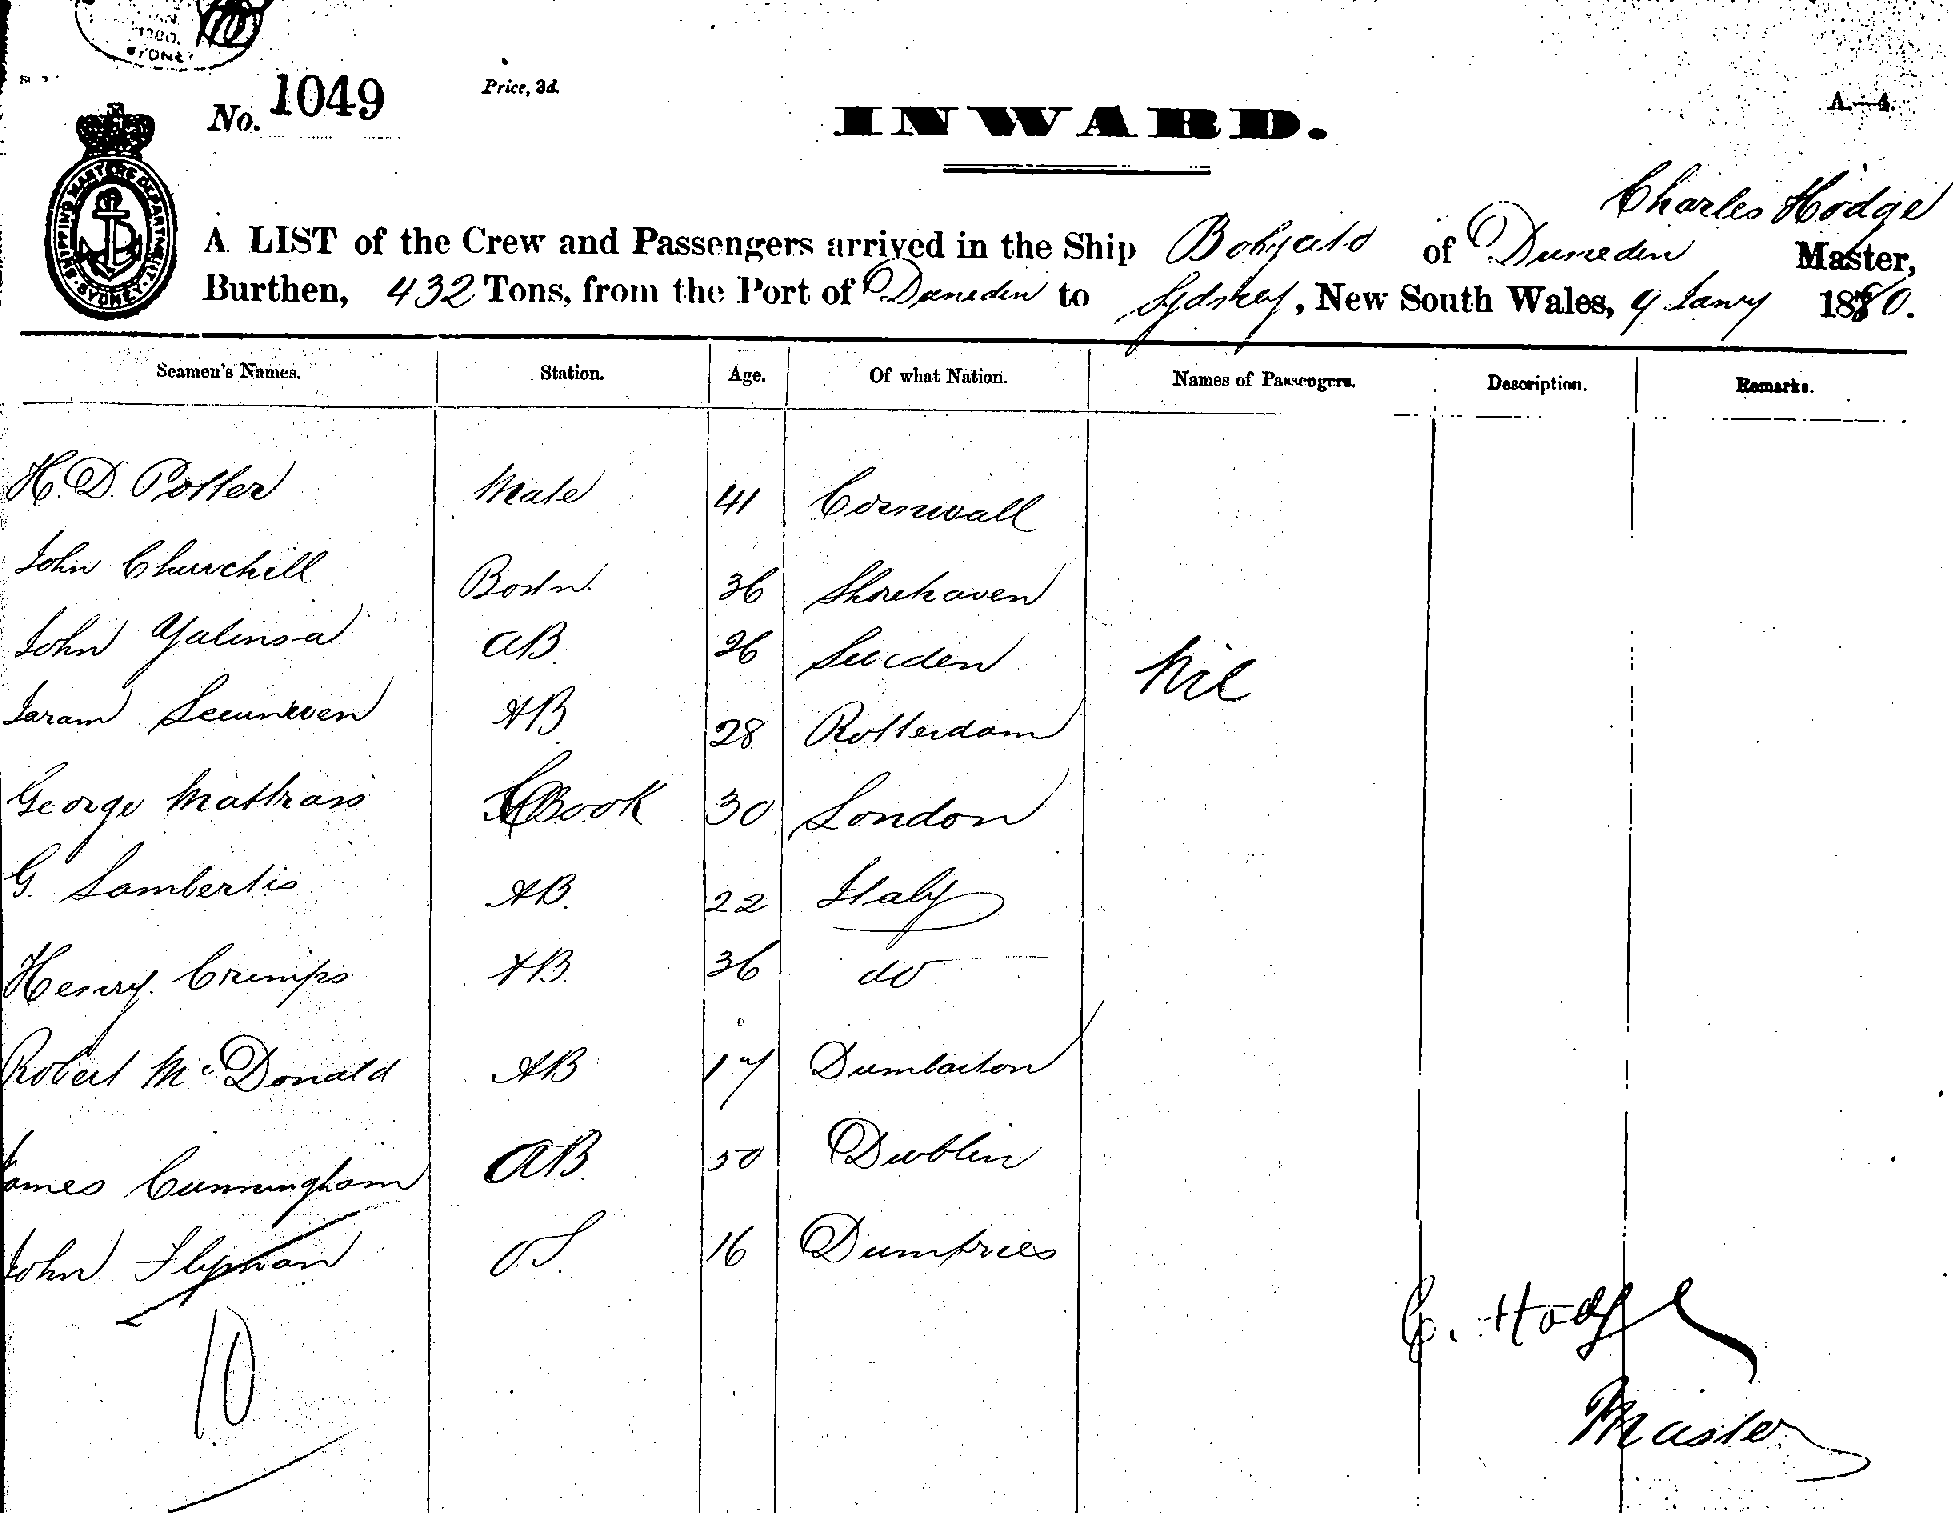 SYDNEY
No. 1049
Price, 3d.
INWARD.
A.—4.
SHIPPING MASTERS DEPARTMENT SYDNEY
Charles Hodge
A LIST of the Crew and Passengers arrived in the Ship of Dunedin Master,
Burthen, 432 Tons, from the Port of Dunedin to Sydney, New South Wales, 9 Jany 1880.
Seamen's Names. Station. Age. Of what Nation. Names of Passengers. Description. Remarks.
H. D. Potter Mate 41 Cornwall
John Churchill Bosln 36 Shorehaven
John 26 Sweden
AB.
Nil
AB 28 Rotterdam
George Cook 30 London
G. Lambertis AB. 22 Italy
Henry Crimps AB. 36 do
Robert McDonald AB 17 Dumbarton
James Cunningham AB. 50 Dublin
John OS. 16 Dumfries
10
C. Hodge
Master